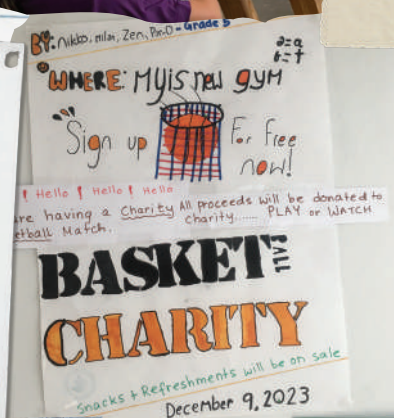 BY: Nikko, milai, Zen, - Grade 5
a=a
t=t
WHERE: Myis new gym
Sign up For free
now!
! Hello ! Hello ! Hello
are having a Charity All proceeds will be donated to
etball Match. charity...... PLAY or WATCH
BASKET BALL
CHARITY
Snacks + Refreshments will be on sale
December 9, 2023